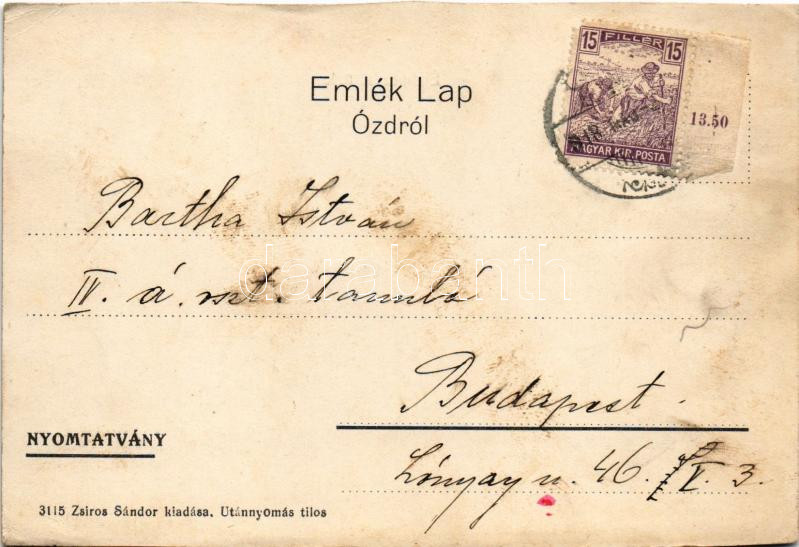 15 FILLÉR 15
MAGYAR KIR. POSTA
13.50
918
Emlék Lap
Ózdról
Bartha István
IV. á. oszt. tanuló
darabanth
Budapest.
NYOMTATVÁNY
Lónyay u. 46. V. 3.
3115 Zsiros Sándor kiadása. Utánnyomás tilos